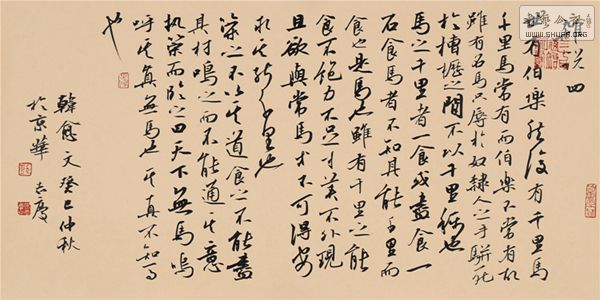 雜說四
世有伯樂然後有千里馬
千里馬常有而伯樂不常有故
雖有名馬只辱於奴隸人之手駢死
於槽櫪之間不以千里稱也
馬之千里者一食或盡食一
石食馬者不知其能千里而
食之是馬也雖有千里之能
食不飽力不足才美不外現
且欲與常馬才不可得安
求其能千里也
策之不以其道食之不能盡
其材鳴之而不能通其意
執策而臨之曰天下無馬嗚
呼其真無馬也其真不知馬
也
韓愈文癸巳仲秋
於京華志慶
WWW.SHUFA.ORG